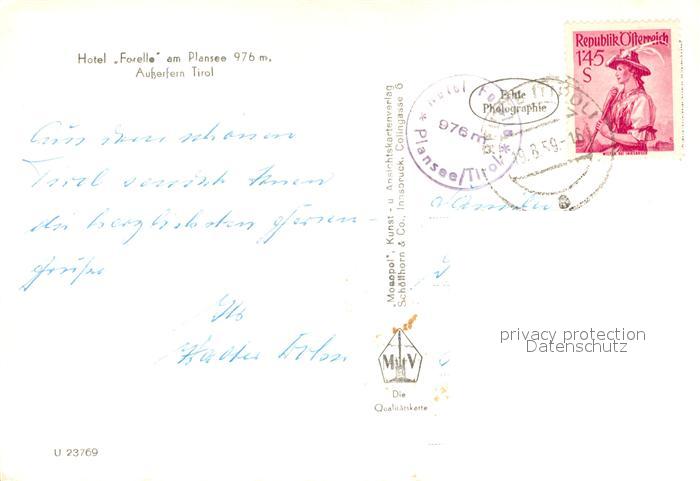 Hotel „Forelle" am Plansee 976 m,
Außerfern Tirol
Aus dem schönen
Tirol sendet Ihnen
die herzlichsten Ferien-
grüße
Ihr
Walter
"Monopol", Kunst- u. Ansichtskartenverlag
Schöllhorn & Co., Innsbruck, Colingasse 6
M V
Die
Qualitätskarte
Echte
Photographie
Hotel Forelle
976 m
* Plansee/Tirol *
(TIROL)
9.8.59-16
Republik Österreich
1'45
S
Familie
privacy protection
Datenschutz
U 23769